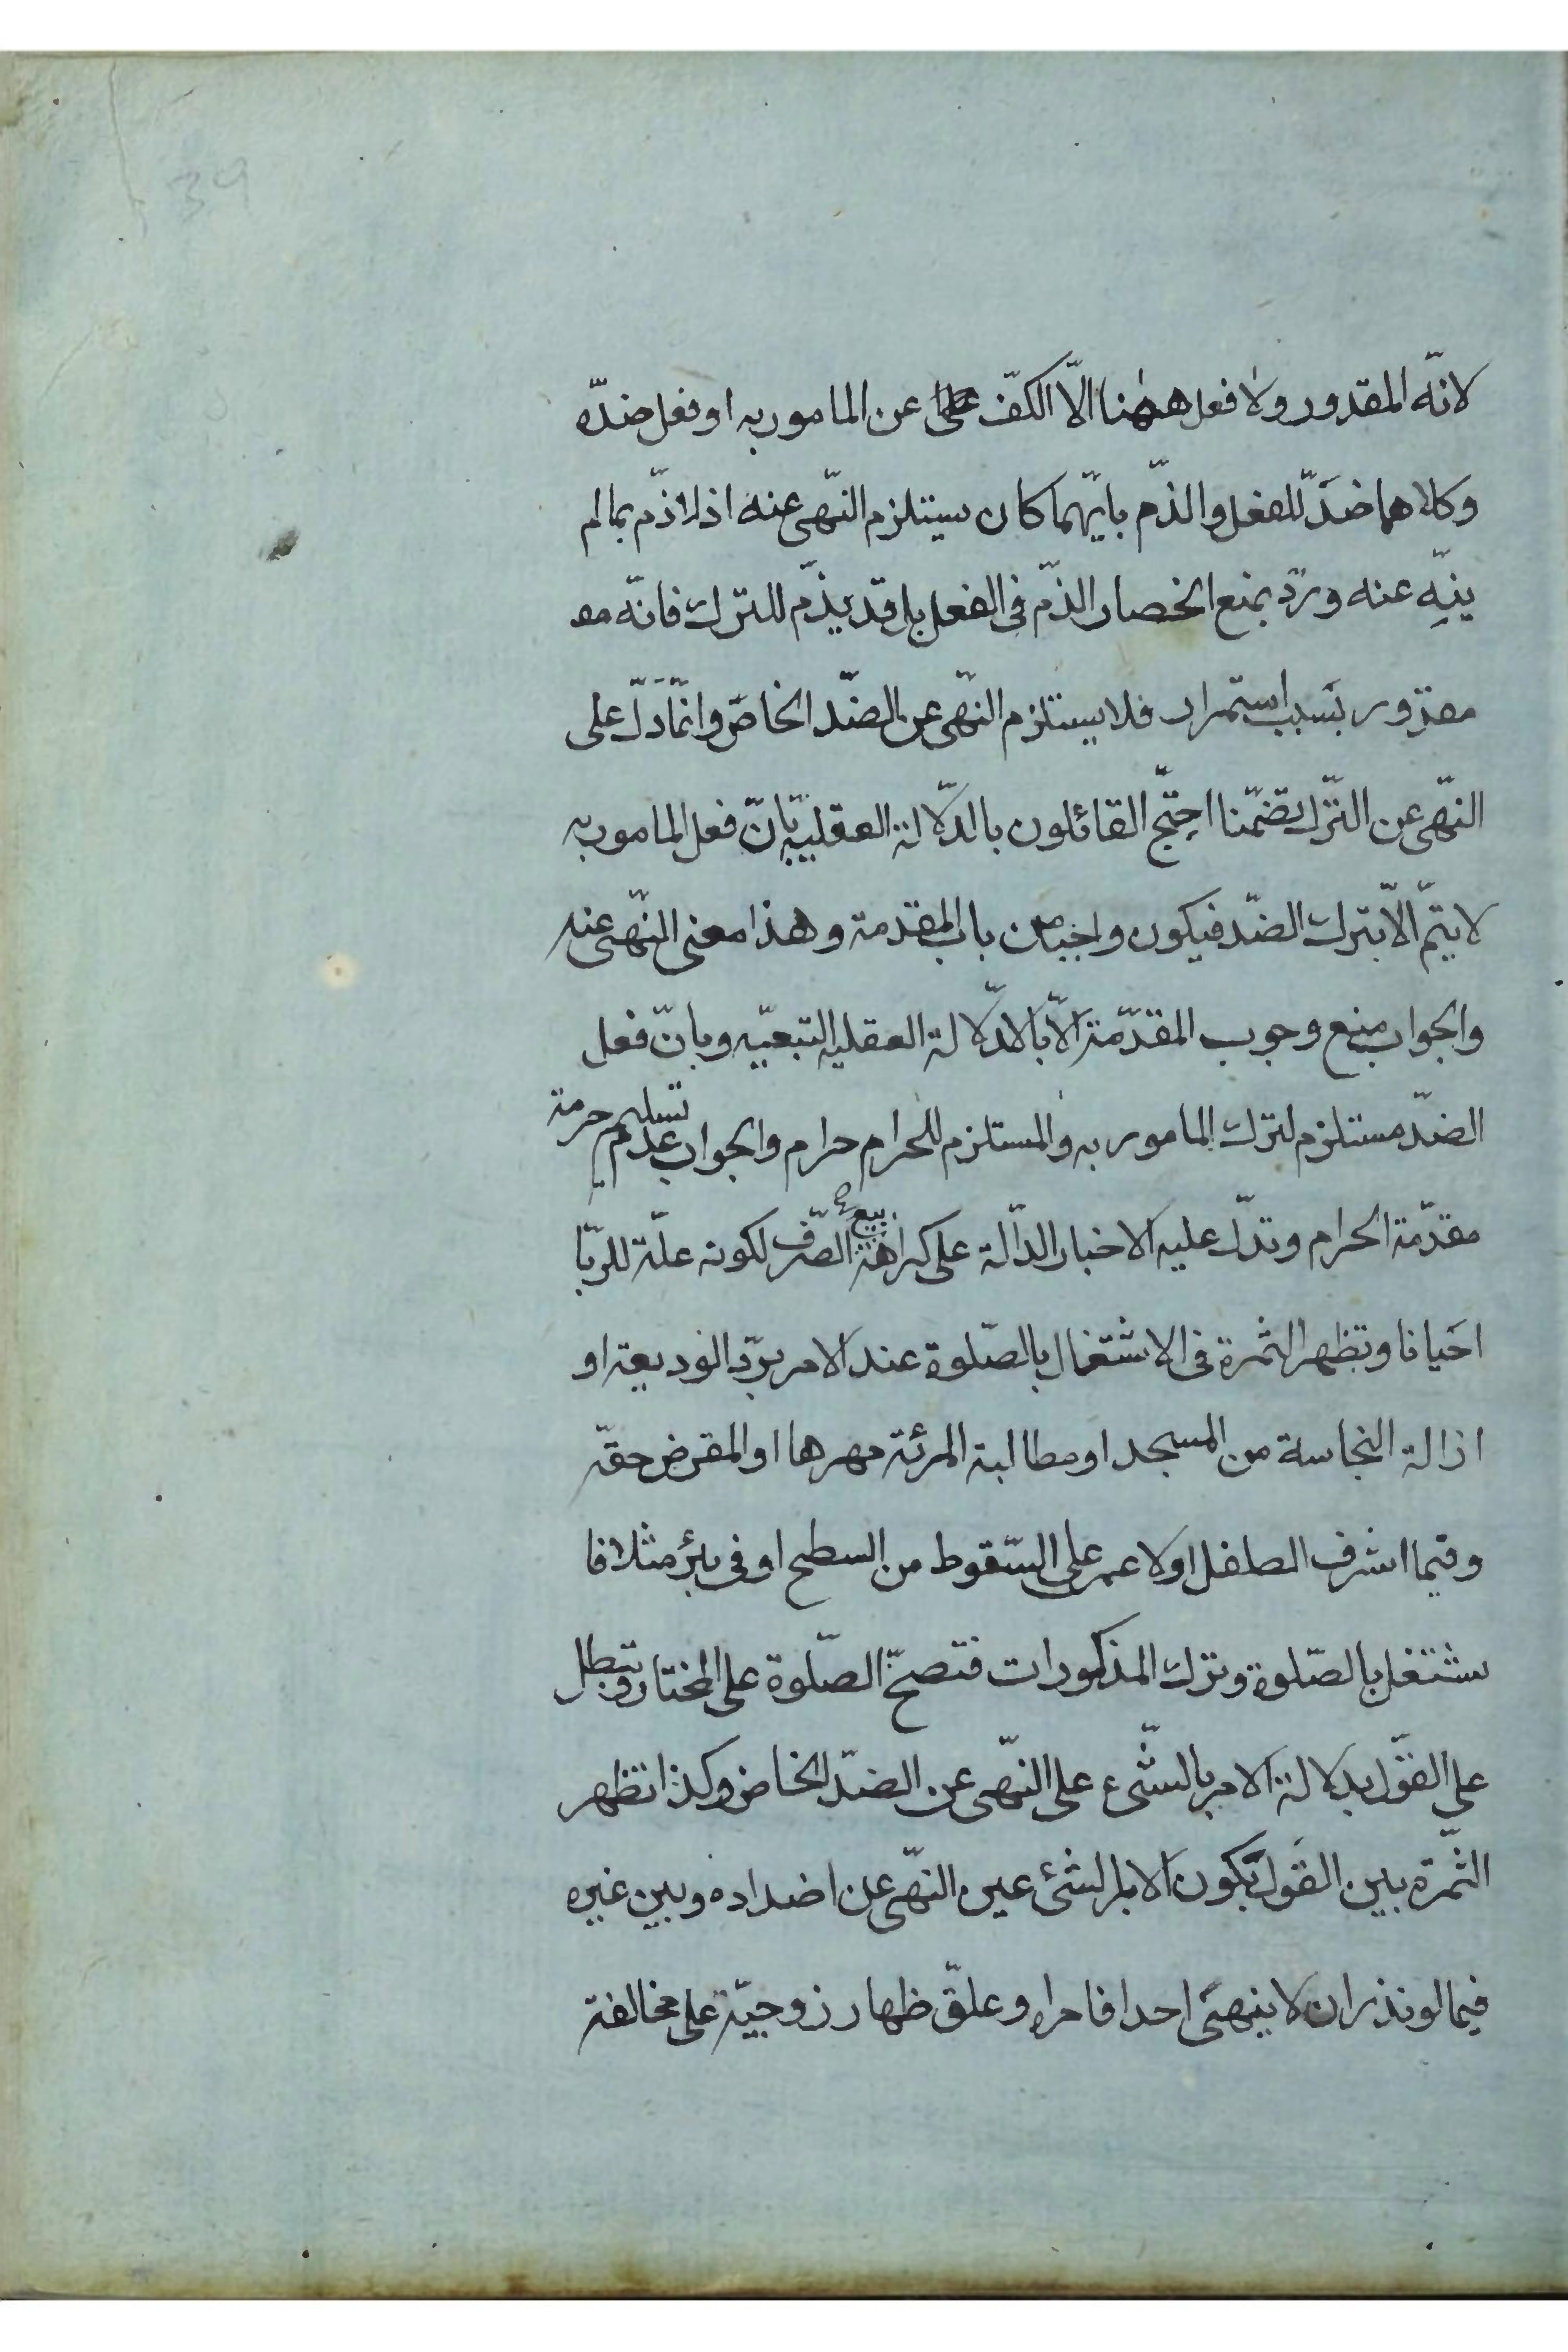 39
لانّه المقدور ولا فعل ههنا الّا الكفّ عن المامور به او فعل ضدّه
وكلاهما ضدّ للفعل والذّم بايّهما كان يستلزم النّهى عنه اذ لا ذّم بما لم
ينه عنه وردّ بمنع انحصار الذّم فى الفعل بل قد يذّم للترك فانّه مقـ
مقدور بسبب استمرار فلا يستلزم النّهى عن الضدّ الخاصّ وانّما دلّ على
النّهى عن التّرك تضمّنا احتجّ القائلون بالدّلالة العقليه بانّ فعل المامور به
لا يتمّ الّا بترك الضدّ فيكون واجبا من باب المقدمة وهذا معنى النّهى عنه
والجواب منع وجوب المقدّمة الّا بالدّلالة العقليه التبعيّه وبانّ فعل
الضدّ مستلزم لترك المامور به والمستلزم للحرام حرام والجواب عدم تسليم حرمة
مقدّمة الحرام وتدلّ عليه الاخبار الدالّة على كراهة بيع الصّرف لكونه علّة للرّبا
احيانا وتظهر الثمرة فى الاشتغال بالصّلوة عند الامر بردّ الوديعة او
ازالة النجاسة من المسجد او مطالبة المرئة مهرها او المقرض حقّه
وفيما اشرف الطفل او لاعمى على السّقوط من السطح او فى بئر مثلا فا
شتغل بالصّلوة وترك المذكورات فتصحّ الصّلوة على المختار وتبطل
على القول بدلالة الامر بالشّىء على النّهى عن الضدّ الخاص وكذا تظهر
الثّمرة بين القول بكون الامر بالشئ عين النهّى عن اضداده وبين غيره
فيما لو نذر ان لا ينهى احدا فامراه وعلّق ظهار زوجيّة على مخالفة